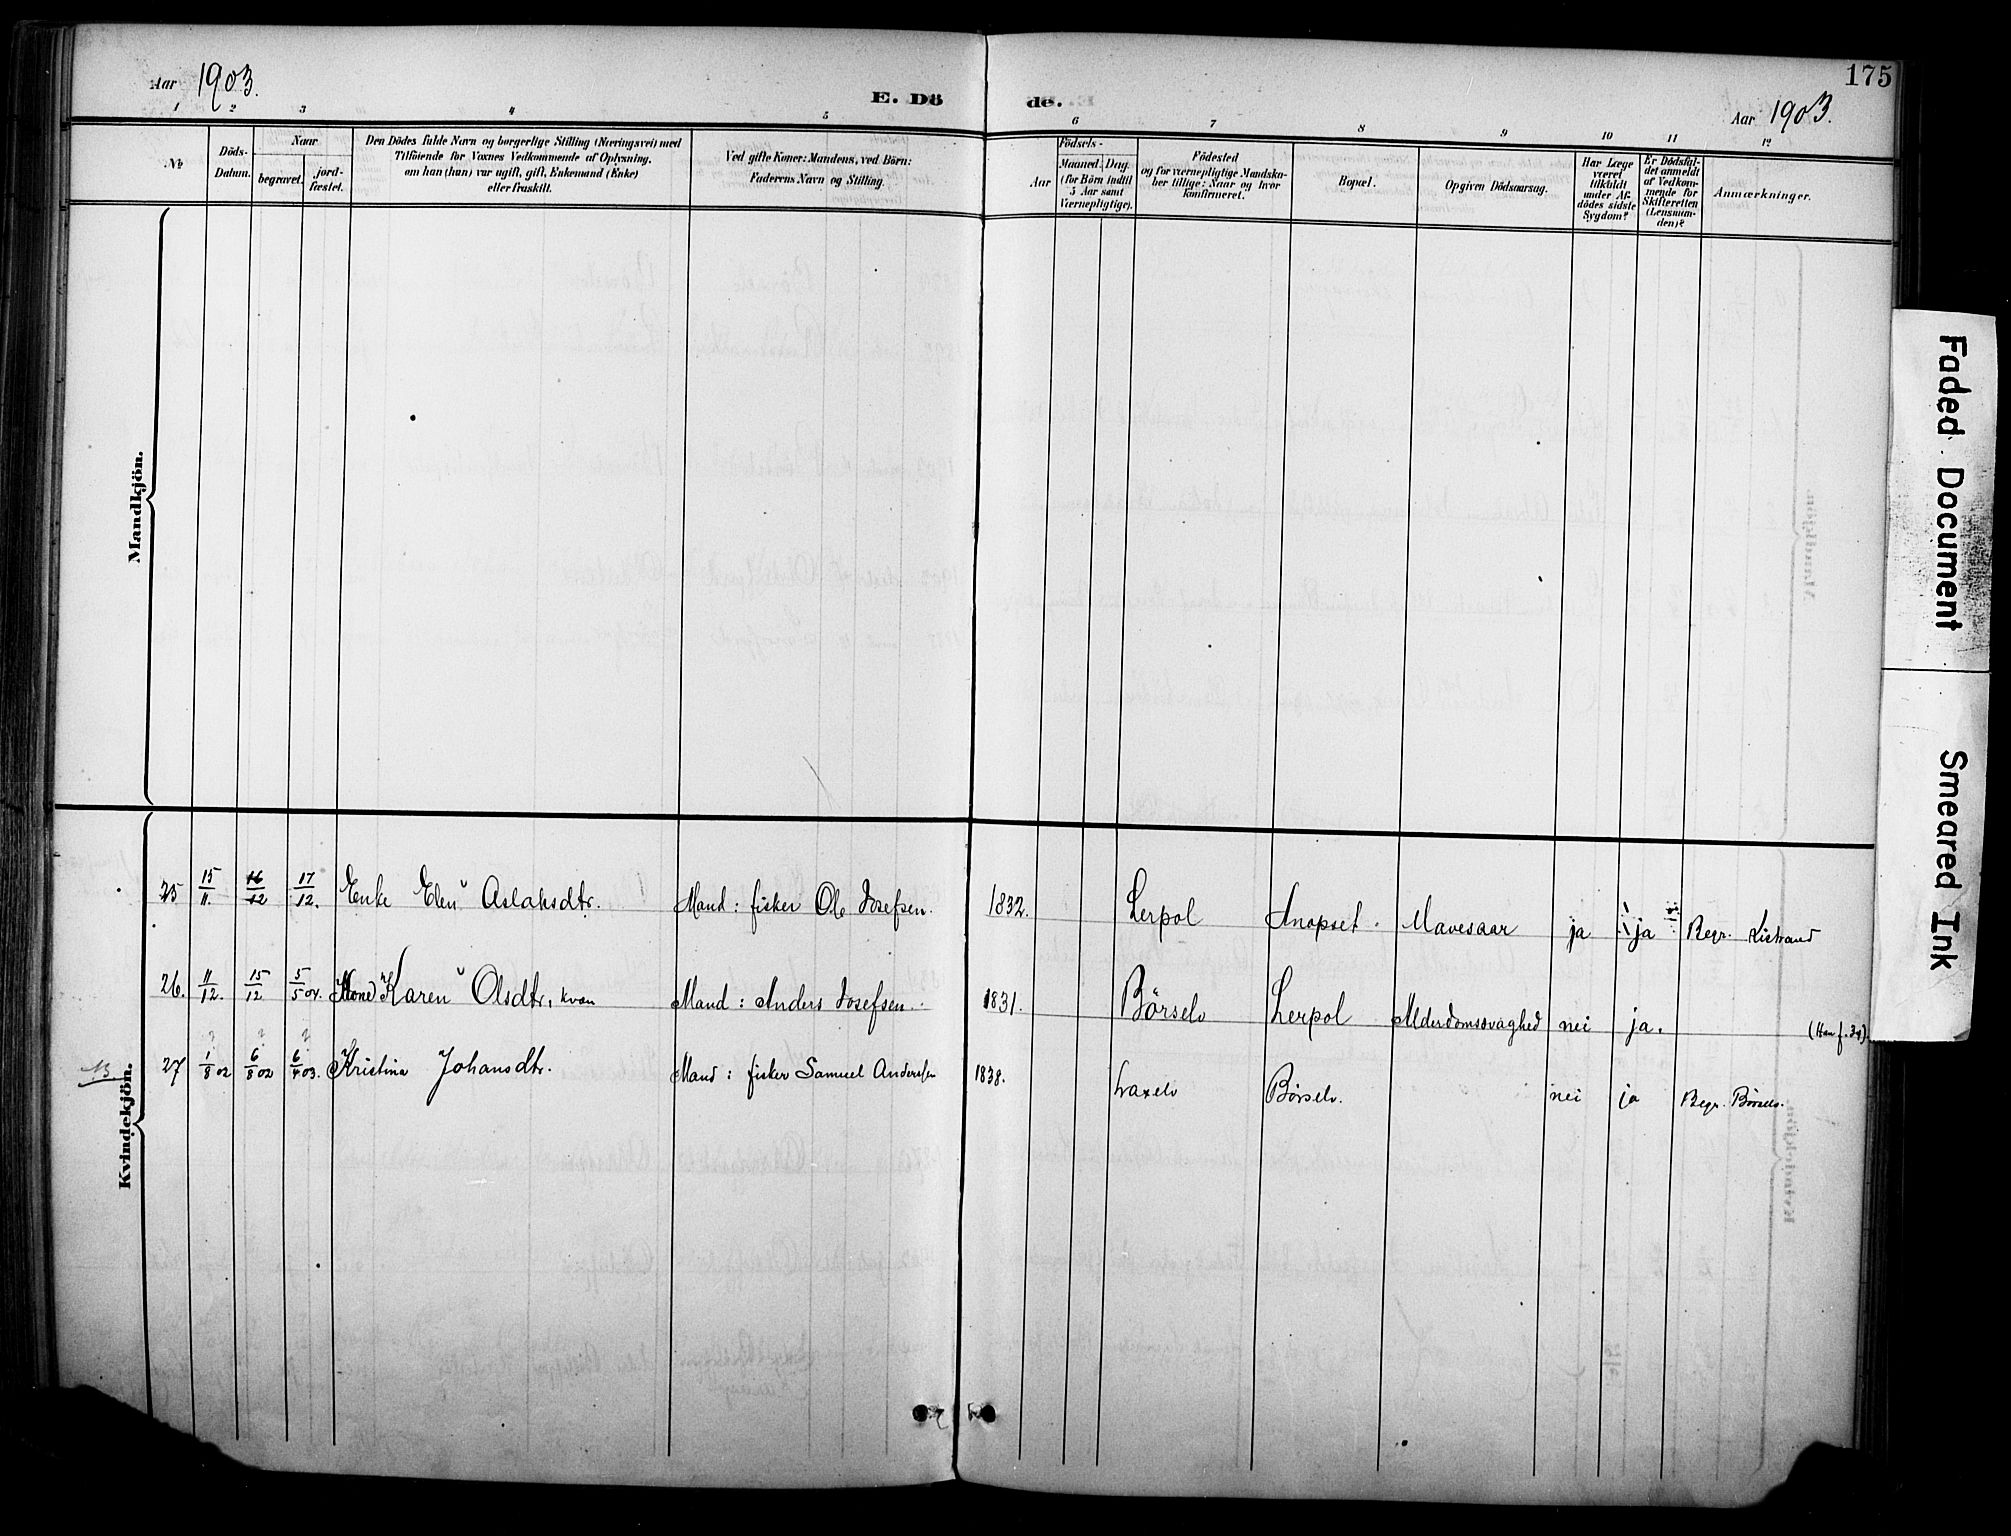 175
Aar 1903.
E. Dö de.
Aar 1903.
1 2 3 4 5 6 7 8 9 10 11 12
No
Döds-
Datum.
Naar
begravet.
jord-
fæstet.
Den Dödes fulde Navn og borgerlige Stilling (Næringsvei) med
Tilföiende for Voxnes Vedkommende af Oplysning,
om han (hun) var ugift, gift, Enkemand (Enke)
eller fraskilt.
Ved gifte Koner: Mandens, ved Börn:
Faderens Navn og Stilling.
Födsels-
Aar
Maaned. Dag.
(for Börn indtil
5 Aar samt
Værnepligtige).
Födested
og for værnepligtige Mandska-
ber tillige: Naar og hvor
konfirmeret.
Bopæl.
Opgiven Dödsaarsag.
Har Læge
været
tilkaldt
under Af-
dödes sidste
Sygdom?
Er Dödsfal-
det anmeldt
af Vedkom-
mende for
Skifteretten
(Lensman-
den)?
Anmærkninger.
Mandkjön.
Kvindekjön.
25 15/11. 16/12 17/12. Enke Elen Aslaksdtr. Mand: fisker Ole Josefsen. 1832. Lerpol Anopset. Mavesaar ja ja Begr. Listrand
26. 11/12. 15/12 5/5 04. Karen Olsdtr, kvæn Mand: Anders Josefsen. 1831. Börselv Lerpol Alderdomssvaghed nei ja. (Han f. 34).
? ? ?
13 27 1/8 02 6/8 02 6/4 03. Kristina Johansdtr. Mand: fisker Samuel Andersen 1838. Laxelv Börselv. nei ja Begr. Börselv.
Faded Document
Smeared Ink